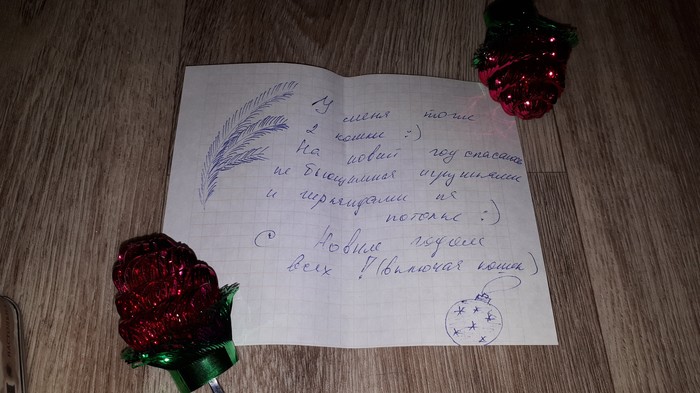 У меня тоже
2 кошки :)
На новый год спасаюсь
не бьющимися игрушками
и гирляндами на
потолке :)
С Новым годом
всех !! (включая кошек)